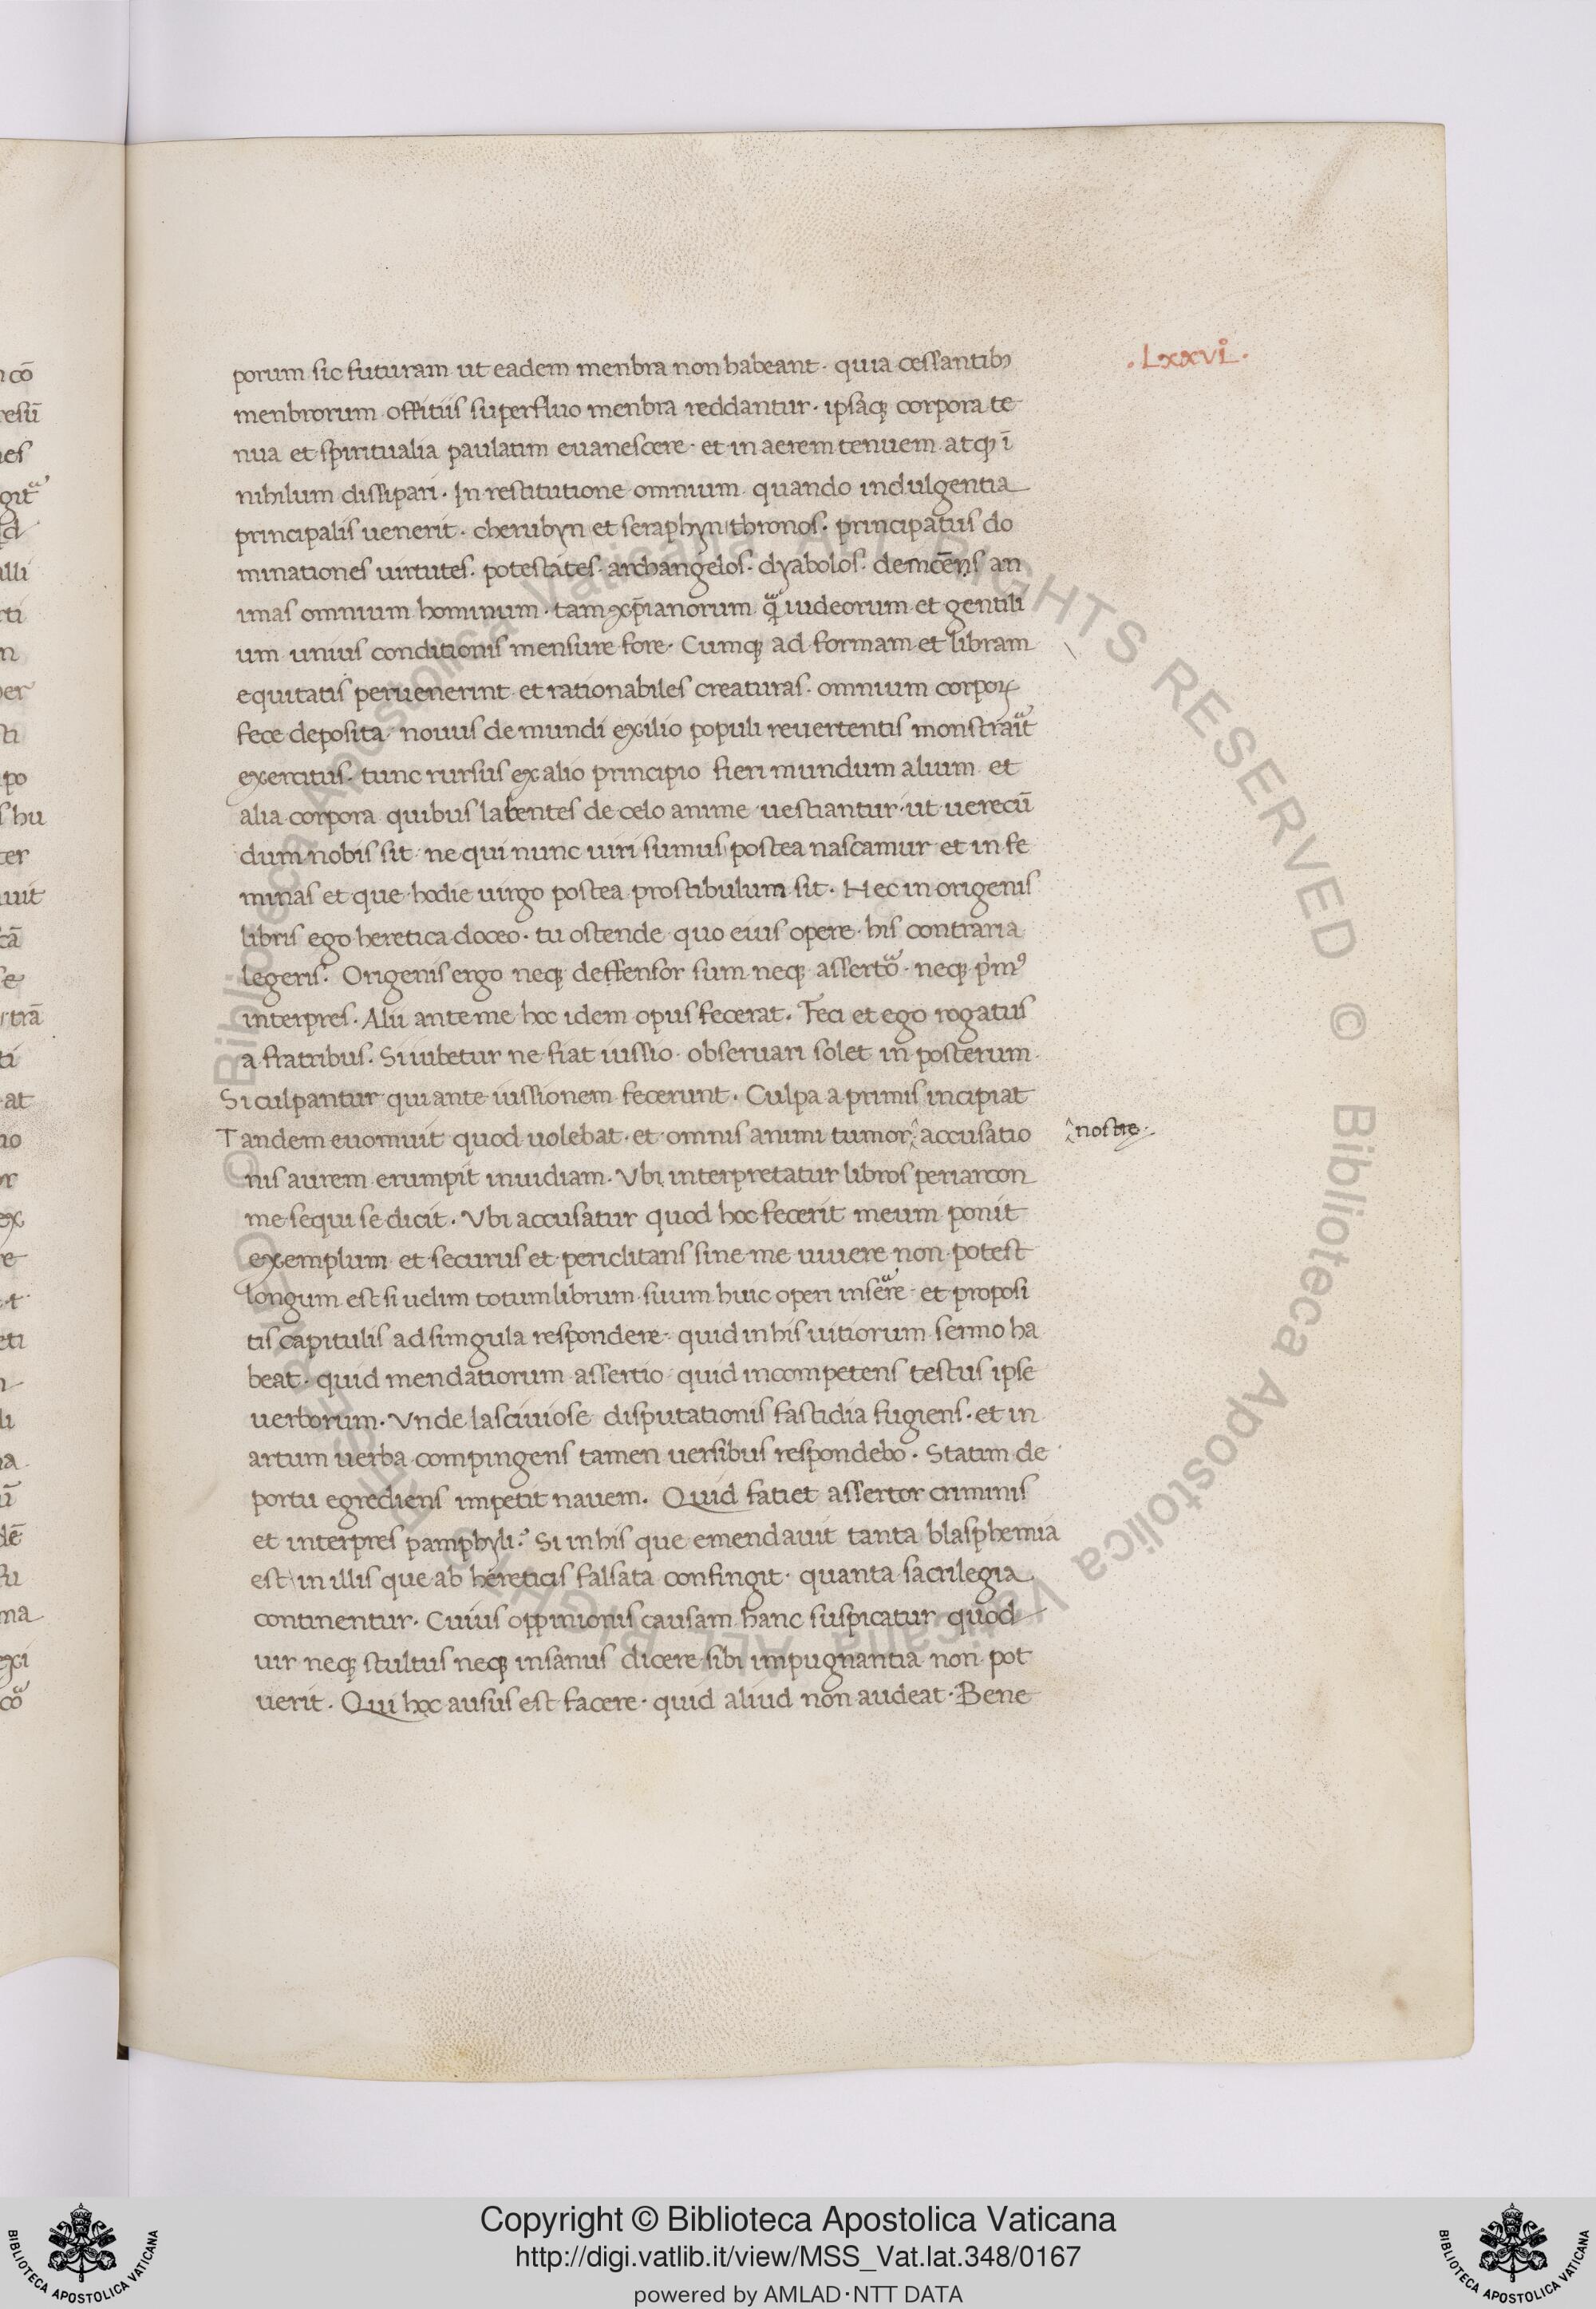 .Lxxvi.
porum sic futuram ut eadem menbra non habeant · quia cessantibꝫ
menbrorum offitiis superfluo menbra reddantur · ipsaqꝫ corpora te
nua et spiritualia paulatim euanescere · et in aerem tenuem atqꝫ ī
nihilum dissipari · In restitutione omnium quando indulgentia
principalis uenerit · cherubyn et seraphyn thronos · principatus do
minationes uirtutes · potestates · archangelos · dyabolos · an
imas omnium hominum · tam xp̄ianorum iudeorum et gentili
um unius conditionis mensure fore · Cumqꝫ ad formam et libram
equitatis peruenerint et rationabiles creaturas · omnium corpoꝝ
fece deposita nouus de mundi exilio populi reuertentis
exercitus · tunc rursus ex alio principio fieri mundum alium et
alia corpora quibus labentes de celo anime uestiantur · ut uerecū
dum nobis sit ne qui nunc uiri sumus postea nascamur et in fe
minas et que hodie uirgo postea prostibulum sit · Hec in origenis
libris ego heretica doceo · tu ostende quo eius opere his contraria
legeris · Origenis ergo neqꝫ deffensor sum neqꝫ · neqꝫ
interpres · Alii ante me hoc idem opus fecerat · Feci et ego rogatus
a fratribus · Si iubetur ne fiat iussio obseruari solet in posterum
Si culpantur qui ante iussionem fecerunt · Culpa a primis incipiat
Tandem euomuit quod uolebat · et omnis animi tumor accusatio
nostre
nis aurem erumpit inuidiam · Vbi interpretatur libros periarcon
me sequi se dicit · Vbi accusatur quod hoc fecerit meum ponit
exemplum et securus et periclitans sine me uiuere non potest
longum est si uelim totum librum suum huic operi et proposi
tis capitulis ad singula respondere · quid in his uitiorum sermo ha
beat · quid mendatiorum assertio quid incompetens testus ipse
uerborum · Vnde lasciuiose disputationis fastidia fugiens · et in
artum uerba compingens tamen uersibus respondebo · Statim de
portu egrediens impetit nauem · Quid fatiet assertor criminis
et interpres pamphyli? Si in his que emendauit tanta blasphemia
est in illis que ab hereticis falsata confingit · quanta sacrilegia
continentur · Cuius oppinionis causam hanc suspicatur quod
uir neqꝫ stultus neqꝫ insanus dicere sibi impugnantia non pot
uerit · Qui hoc ausus est facere · quid aliud non audeat · Bene
Copyright © Biblioteca Apostolica Vaticana
http://digi.vatlib.it/view/MSS_Vat.lat.348/0167
powered by AMLAD·NTT DATA